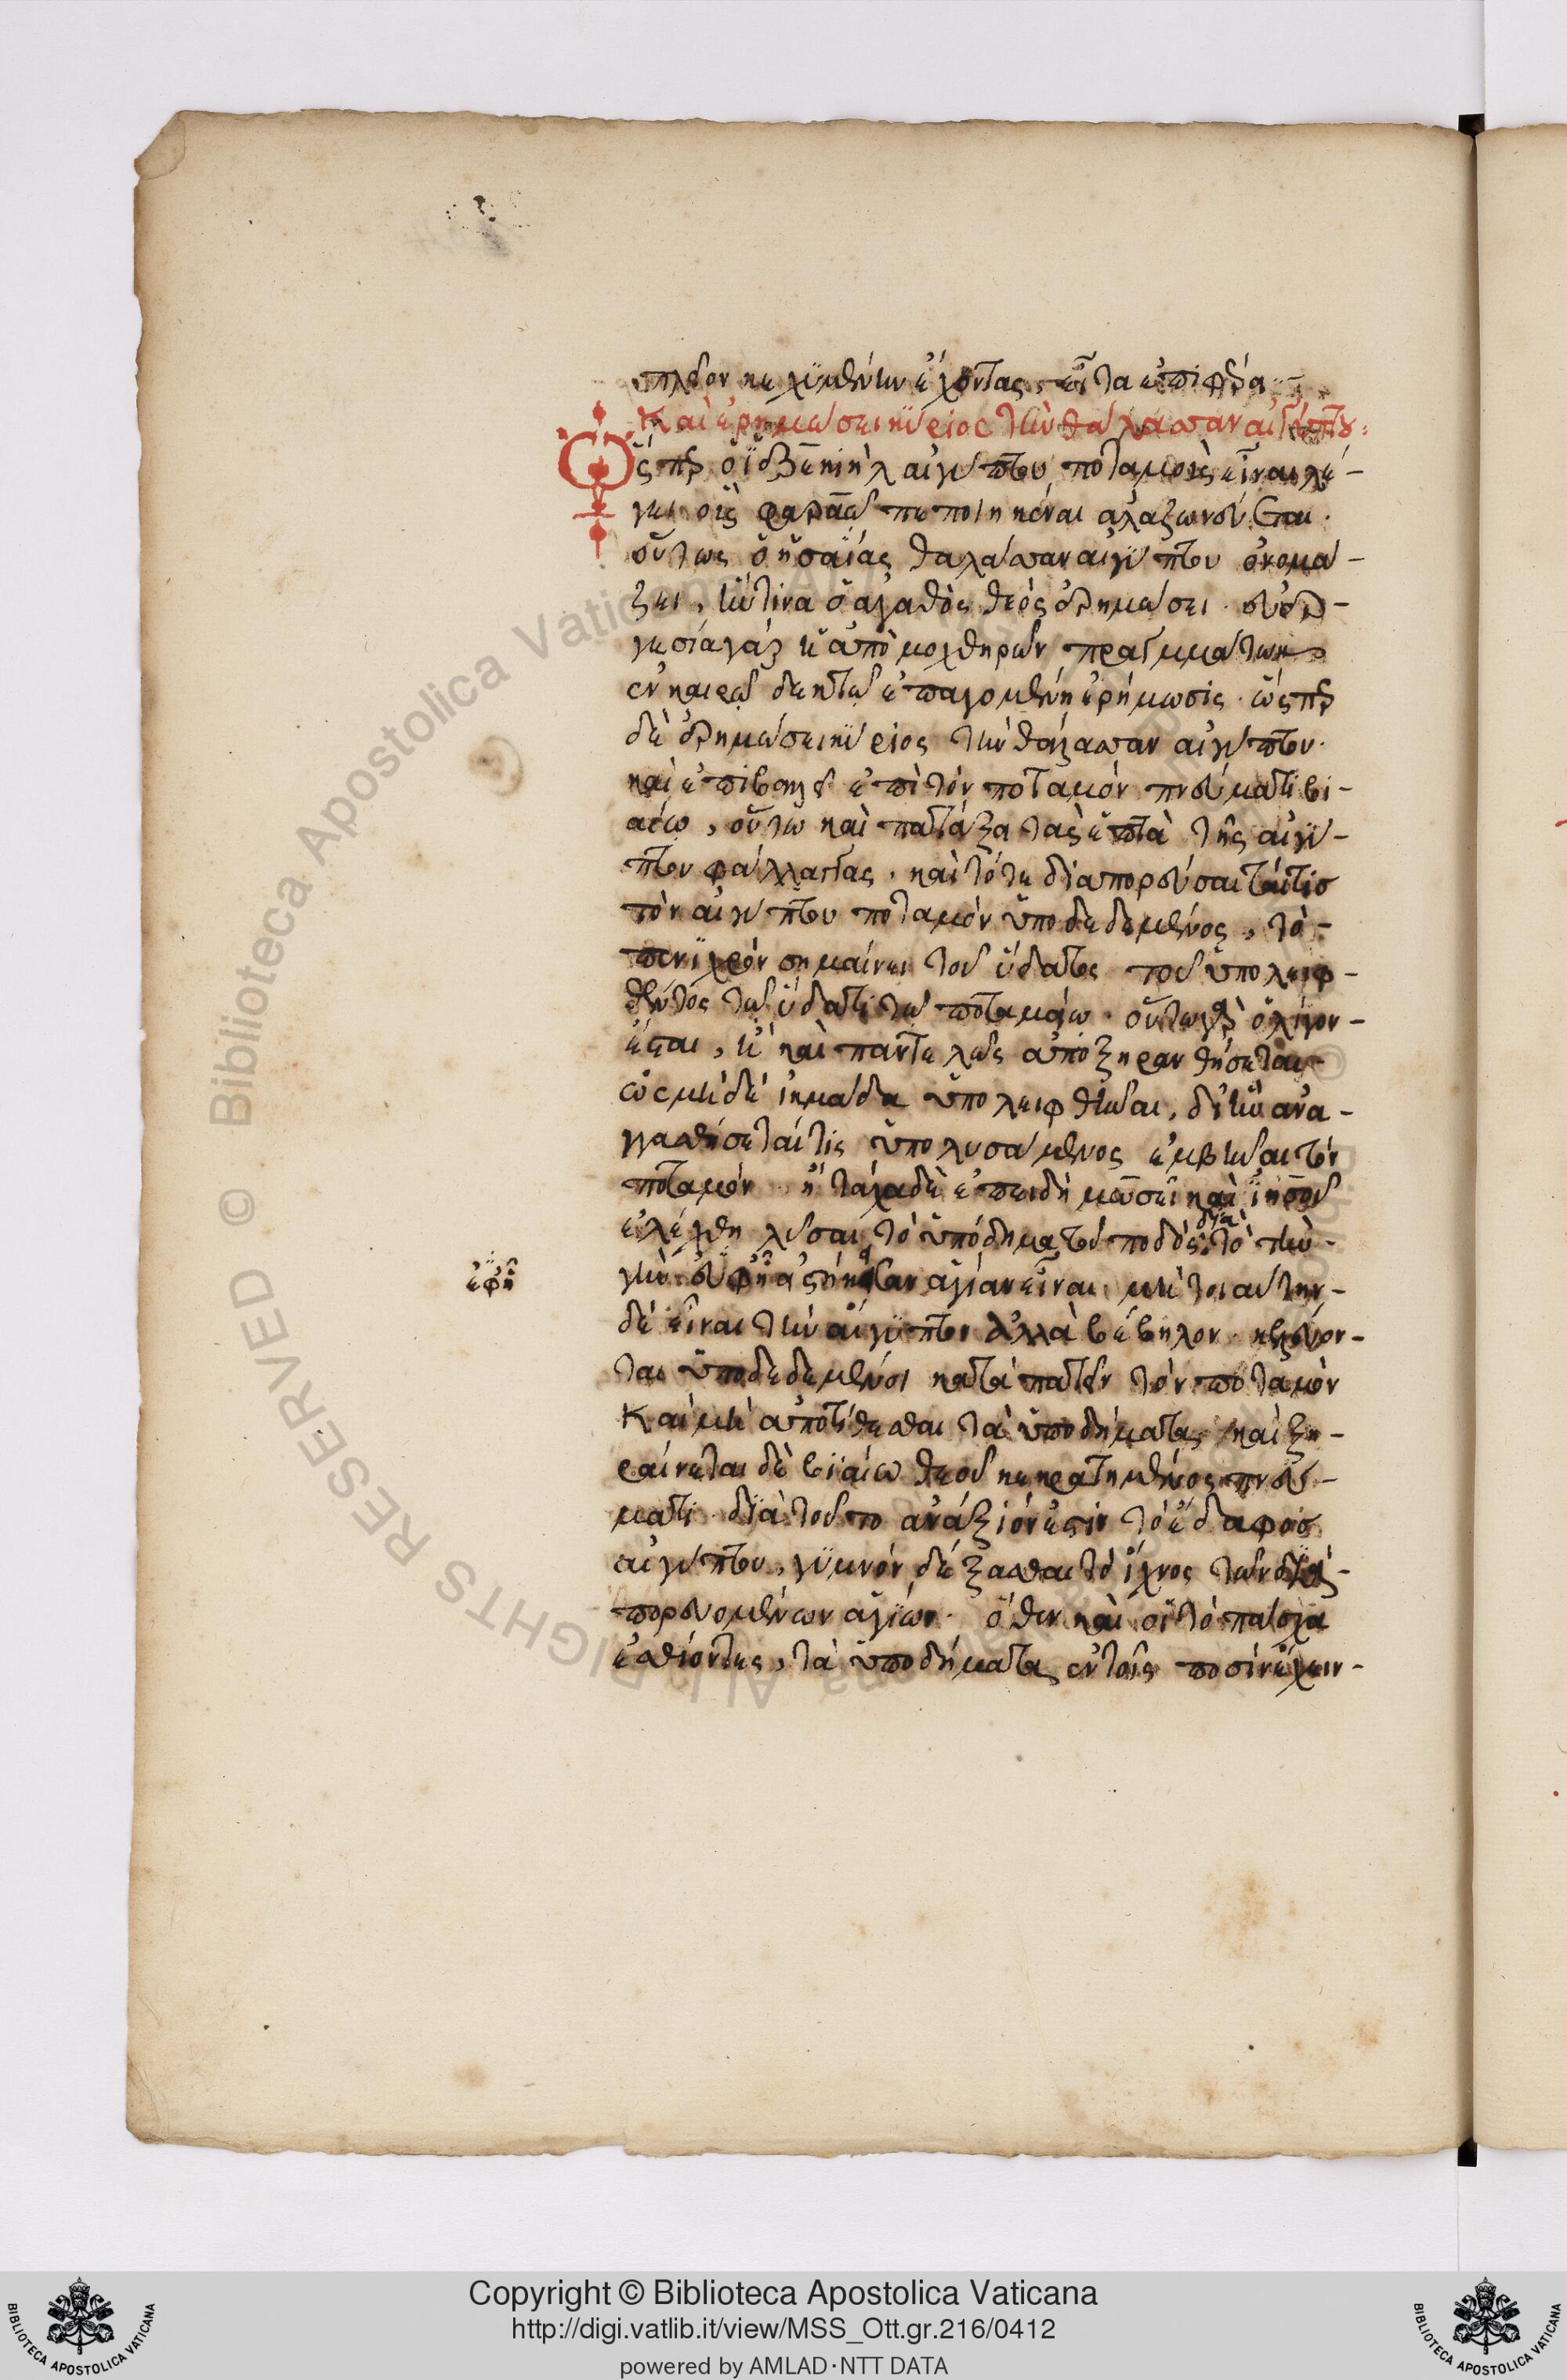 πλέον κεχυμένην ἔχοντας, εἶτα ἐπιφέρει
Καὶ ἐρημώσει κύριος τὴν θάλασσαν αἰγύπτου:
Ὥς περ ὁ ἰεζεκιὴλ αἰγύπτου ποταμοὺς εἶναι λέ-
γει οὓς φαραὼ πεποιηκέναι ἀλαζονεύεται.
οὕτως ὁ ἡσαΐας θάλασσαν αἰγύπτου ὀνομά-
ζει, ἥντινα ὁ ἀγαθὸς θεὸς ἐρημώσει. εὐερ-
γεσία γὰρ ἡ ἀπὸ μοχθηρῶν πραγμάτων
ἐν καιρῷ δεκτῷ ἐπαγομένη ἐρήμωσις. ὥς περ
δὲ ἐρημώσει κύριος τὴν θάλασσαν αἰγύπτου.
καὶ ἐπιβαλεῖ ἐπὶ τὸν ποταμὸν πνεύματι βι-
αίῳ, οὕτω καὶ πατάξα τὰς ἑπτὰ τῆς αἰγύ-
πτου φάλλαγγας. καὶ τότε διαπορεύσαιτό τις
τὸν αἰγύπτου ποταμὸν ὑποδεδεμένος, τὸ
πενιχρὸν σημαίνει τοῦ ὕδατος τοῦ ὑπολειφ-
θέντος τῷ ὕδατι τῷ ποταμίῳ. οὕτω γὰρ ὀλίγον
ἔσται, ἢ καὶ παντελῶς ἀποξηρανθήσεται
ὡς μηδὲ ἰκμάδα ὑπολειφθῆναι, δι' ἣν ἀνα-
γκασθήσεταί τις ὑπολυσάμενος ἐμβῆναι τὸν
ποταμόν. ἢ τάχα δὲ ἐπειδὴ μωσεῖ καὶ ἰησοῦ
ἐλέχθη λῦσαι τὸ ὑπόδημα τοῦ ποδὸς, διὰ τὸ τὴν
γῆν ἐν ᾗ εἱστήκεσαν ἁγίαν εἶναι μὴ τοιαύτην
δὲ εἶναι τὴν αἴγυπτον ἀλλὰ βέβηλον. κελεύον-
ται ὑποδεδεμένοι καταπατεῖν τὸν ποταμὸν
Καὶ μὴ ἀποτίθεσθαι τὰ ὑποδήματα, καὶ ξη-
ραίνεται δὲ βιαίῳ θεοῦ κεκρατημένος πνεύ-
ματι. διὰ τοῦτο ἀνάξιόν ἐστιν τὸ ἔδαφος
αἰγύπτου, γυμνὸν δέξασθαι τὸ ἴχνος τῶν δια-
πορευομένων ἁγίων. ὅθεν καὶ οἱ τὸ πάσχα
ἐσθίοντες, τὰ ὑποδήματα ἐν τοῖς ποσὶν ἔχειν
ἐφ' ᾗ
Copyright © Biblioteca Apostolica Vaticana
http://digi.vatlib.it/view/MSS_Ott.gr.216/0412
powered by AMLAD·NTT DATA
BIBLIOTECA APOSTOLICA VATICANA
BIBLIOTECA APOSTOLICA VATICANA